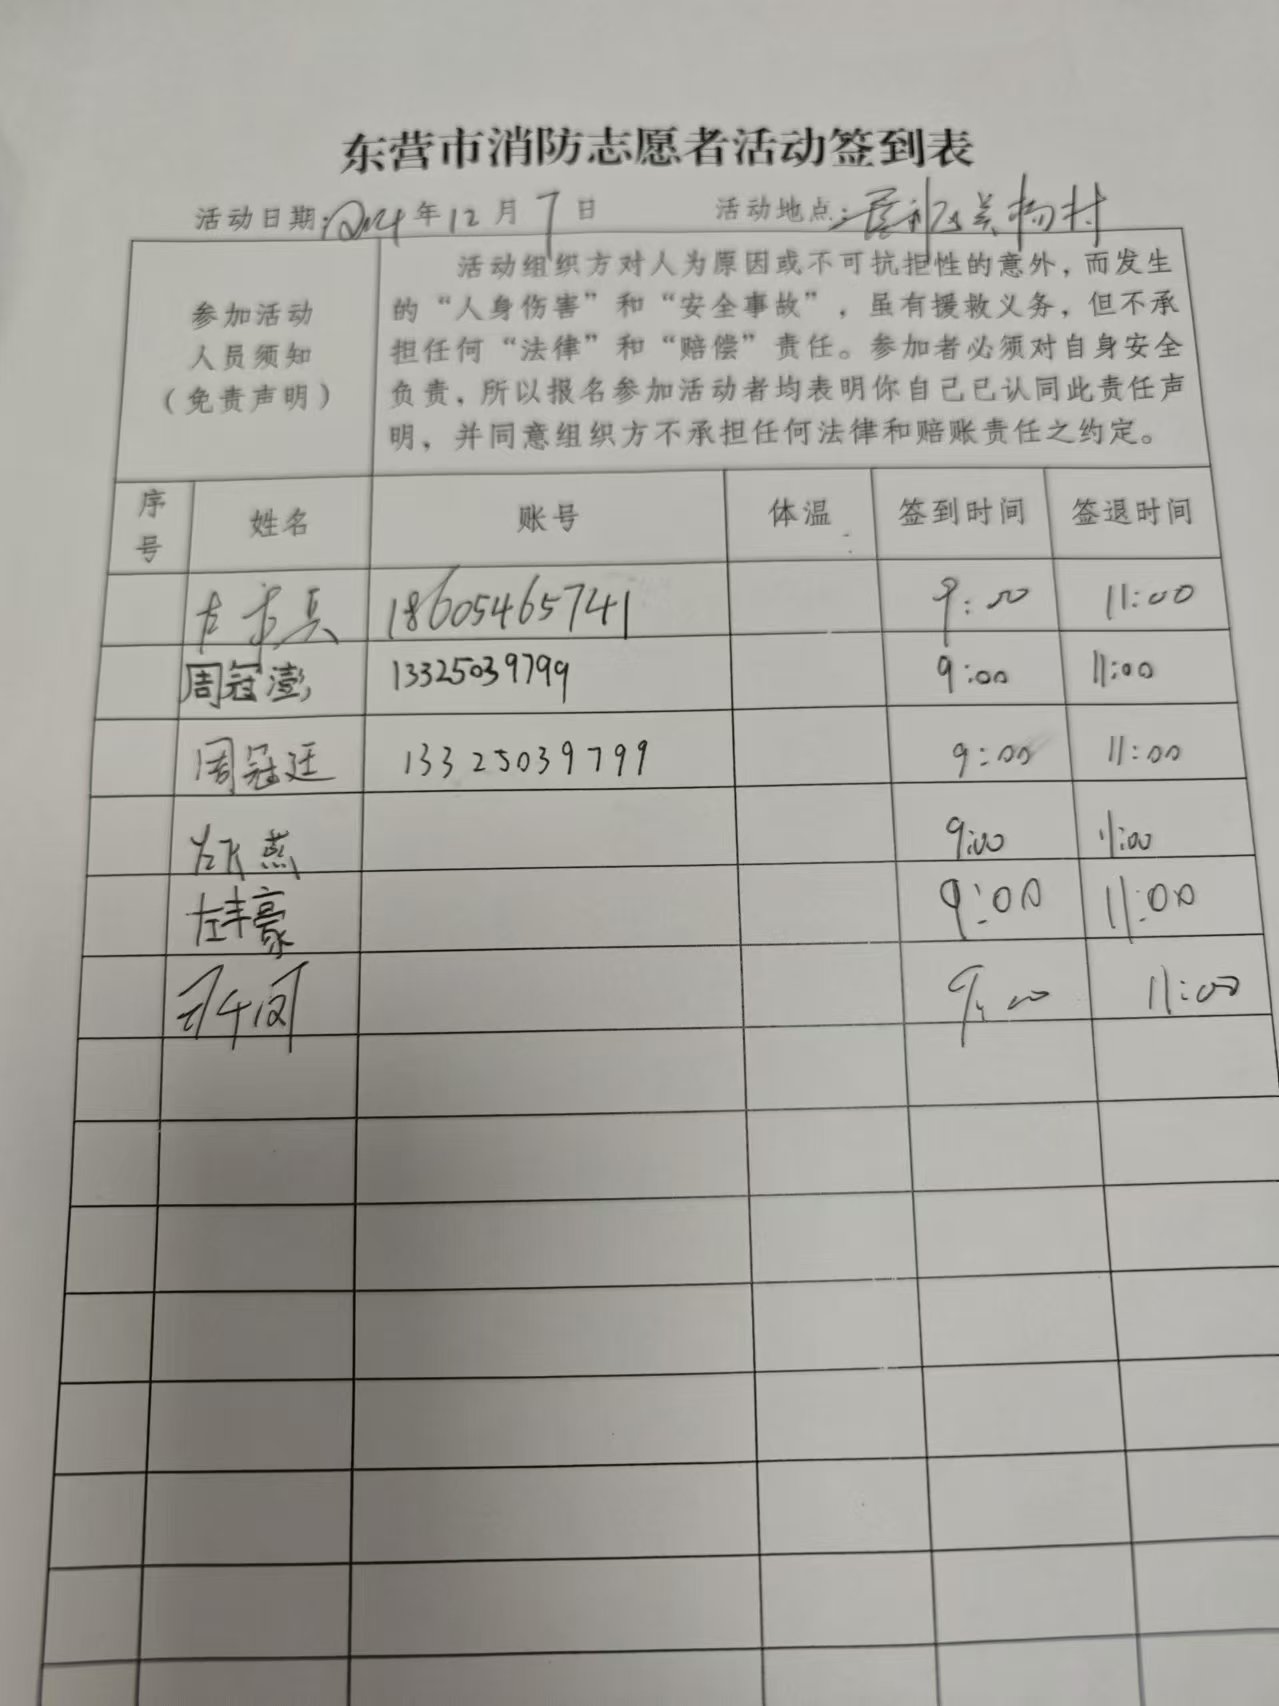 东营市消防志愿者活动签到表
活动日期:2024年12月7日 活动地点:垦利区 杨村
参加活动
人员须知
（免责声明）
活动组织方对人为原因或不可抗拒性的意外，而发生
的“人身伤害”和“安全事故”，虽有援救义务，但不承
担任何“法律”和“赔偿”责任。参加者必须对自身安全
负责，所以报名参加活动者均表明你自己已认同此责任声
明，并同意组织方不承担任何法律和赔账责任之约定。
序号 姓名 账号 体温 签到时间 签退时间
18605465741 9:00 11:00
周冠澎 13325039799 9:00 11:00
周冠廷 13325039799 9:00 11:00
9:00 11:00
左丰豪 9:00 11:00
9:00 11:00